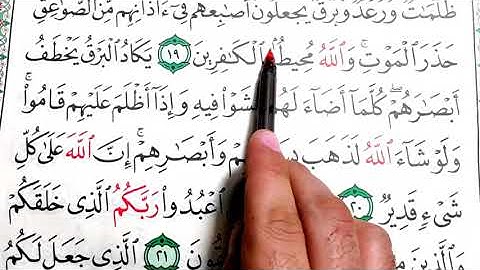 ظُلُمَٰتٌ وَرَعْدٌ وَبَرْقٌ يَجْعَلُونَ أَصَٰبِعَهُمْ فِىٓ ءَاذَانِهِم مِّنَ ٱلصَّوَٰعِقِ
حَذَرَ ٱلْمَوْتِ ۚ وَٱللَّهُ مُحِيطٌۢ بِٱلْكَٰفِرِينَ ١٩ يَكَادُ ٱلْبَرْقُ يَخْطَفُ
أَبْصَٰرَهُمْ ۖ كُلَّمَآ أَضَآءَ لَهُم مَّشَوْا۟ فِيهِ وَإِذَآ أَظْلَمَ عَلَيْهِمْ قَامُوا۟ ۚ
وَلَوْ شَآءَ ٱللَّهُ لَذَهَبَ وَأَبْصَٰرِهِمْ ۚ إِنَّ ٱللَّهَ عَلَىٰ كُلِّ
شَىْءٍ قَدِيرٌ ٢٠ ٱعْبُدُوا۟ رَبَّكُمُ ٱلَّذِى خَلَقَكُمْ
وَٱلَّذِينَ ٢١ ٱلَّذِى جَعَلَ لَكُمُ